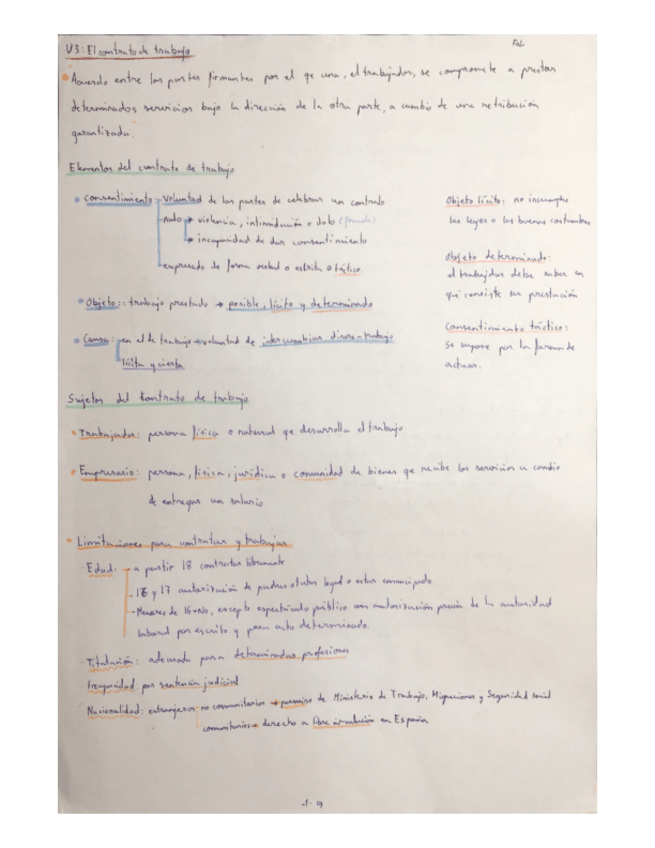 U3: El contrato de trabajo
FOL
Acuerdo entre las partes firmantes por el que una, el trabajador, se compromete a prestar
determinados servicios bajo la dirección de la otra parte, a cambio de una retribución
garantizada.
Elementos del contrato de trabajo
Consentimiento Voluntad de las partes de celebrar un contrato
nulo → violencia, intimidación o dolo (fraude)
→ incapacidad de dar consentimiento
expresado de forma verbal o escrita o táctica.
Objeto: trabajo prestado → posible, lícito y determinado
Causa: en el de trabajo → voluntad de intercambiar dinero-trabajo
lícita y cierta
Objeto lícito: no incumple
las leyes o las buenas costumbres
Objeto determinado:
el trabajador debe saber en
qué consiste su prestación
Consentimiento táctico:
se supone por la forma de
actuar.
Sujetos del contrato de trabajo
Trabajador: persona física o natural que desarrolla el trabajo
Empresario: persona, física, jurídica o comunidad de bienes que recibe los servicios a cambio
de entregar un salario
Limitaciones para contratar y trabajar
Edad: → a partir 18 contratar libremente
- 16 y 17 autorización de padres o tutor legal o estar emancipado.
→ Menores de 16 → No, excepto espectáculo público con autorización previa de la autoridad
laboral por escrito y para acto determinado.
Titulación: adecuada para determinadas profesiones
Incapacidad: por sentencia judicial
Nacionalidad: extranjeros no comunitarios → permiso de Ministerio de Trabajo, Migraciones y Seguridad social
comunitarios → derecho a libre circulación en España